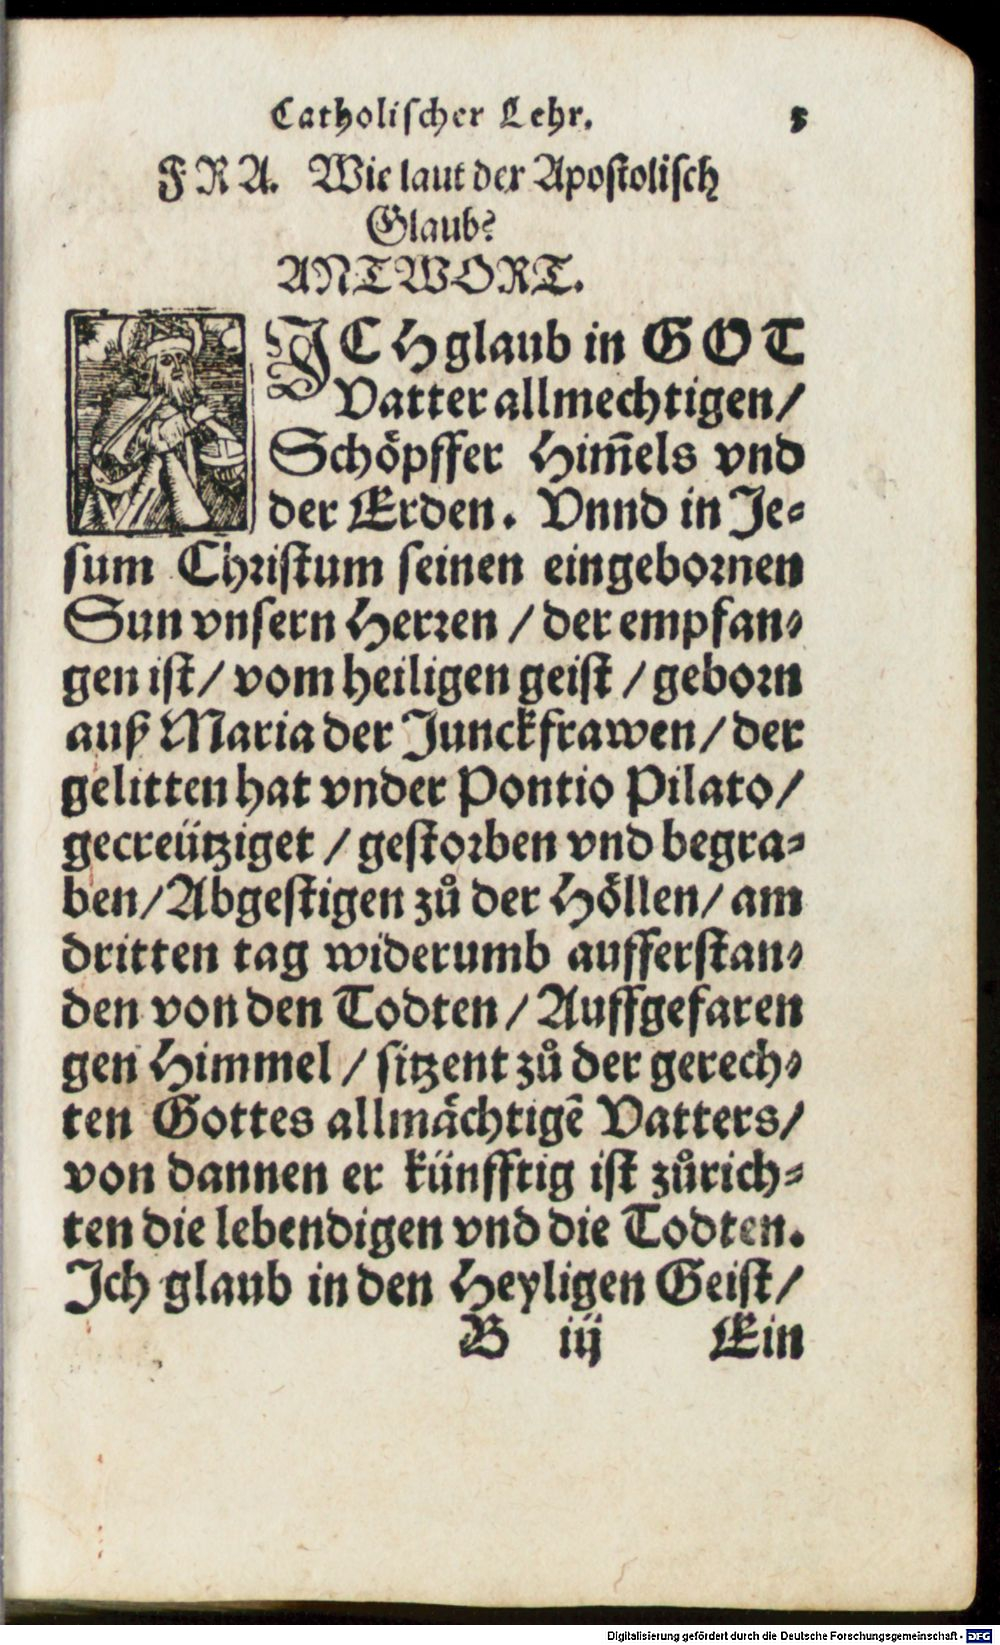 Catholischer Lehr. 5
FRA. Wie laut der Apostolisch
Glaub?
ANTWORT.
ICH glaub in GOT
Vatter allmechtigen /
Schöpffer Him̃els vnd
der Erden. Vnnd in Je⸗
sum Christum seinen eingebornen
Sun vnsern Herren / der empfan⸗
gen ist / vom heiligen geist / geborn
auß Maria der Junckfrawen / der
gelitten hat vnder Pontio Pilato /
gecreütziget / gestorben vnd begra⸗
ben / Abgestigen zů der Höllen / am
dritten tag widerumb aufferstan⸗
den von den Todten / Auffgefaren
gen Himmel / sitzent zů der gerech⸗
ten Gottes allmächtigẽ Vatters /
von dannen er künfftig ist zůrich⸗
ten die lebendigen vnd die Todten.
Ich glaub in den Heyligen Geist /
B iij Ein
Digitalisierung gefördert durch die Deutsche Forschungsgemeinschaft - DFG